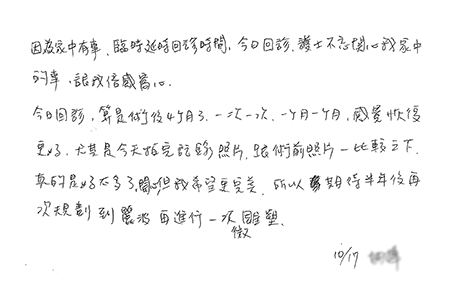 因為家中有事、臨時延時回診時間，今日回診，護士不忘關心我家中
的事，讓我倍感窩心.
今日回診，算是術後4ケ月了，一次一次、一ケ月一ケ月，感覺恢復
更好，尤其是今天拍完記錄照片，跟術前照片一比較之下，
真的是好太多了，但我希望更完美，所以期待半年後再
次規劃到麗波再進行一次微雕塑.
10/17